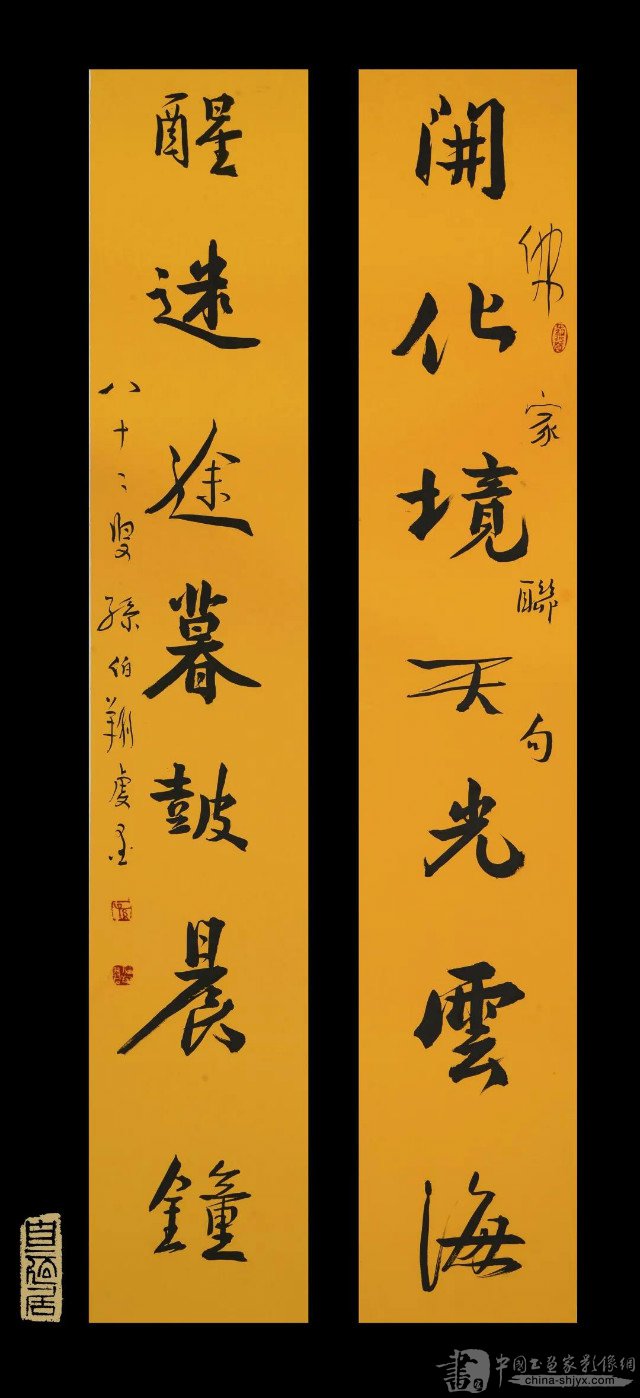 開化境天光雲海
佛家聯句
醒迷途暮鼓晨鐘
八十二叟孫伯翔虔墨
書
中國書畫家影像網
china-shjyx.com